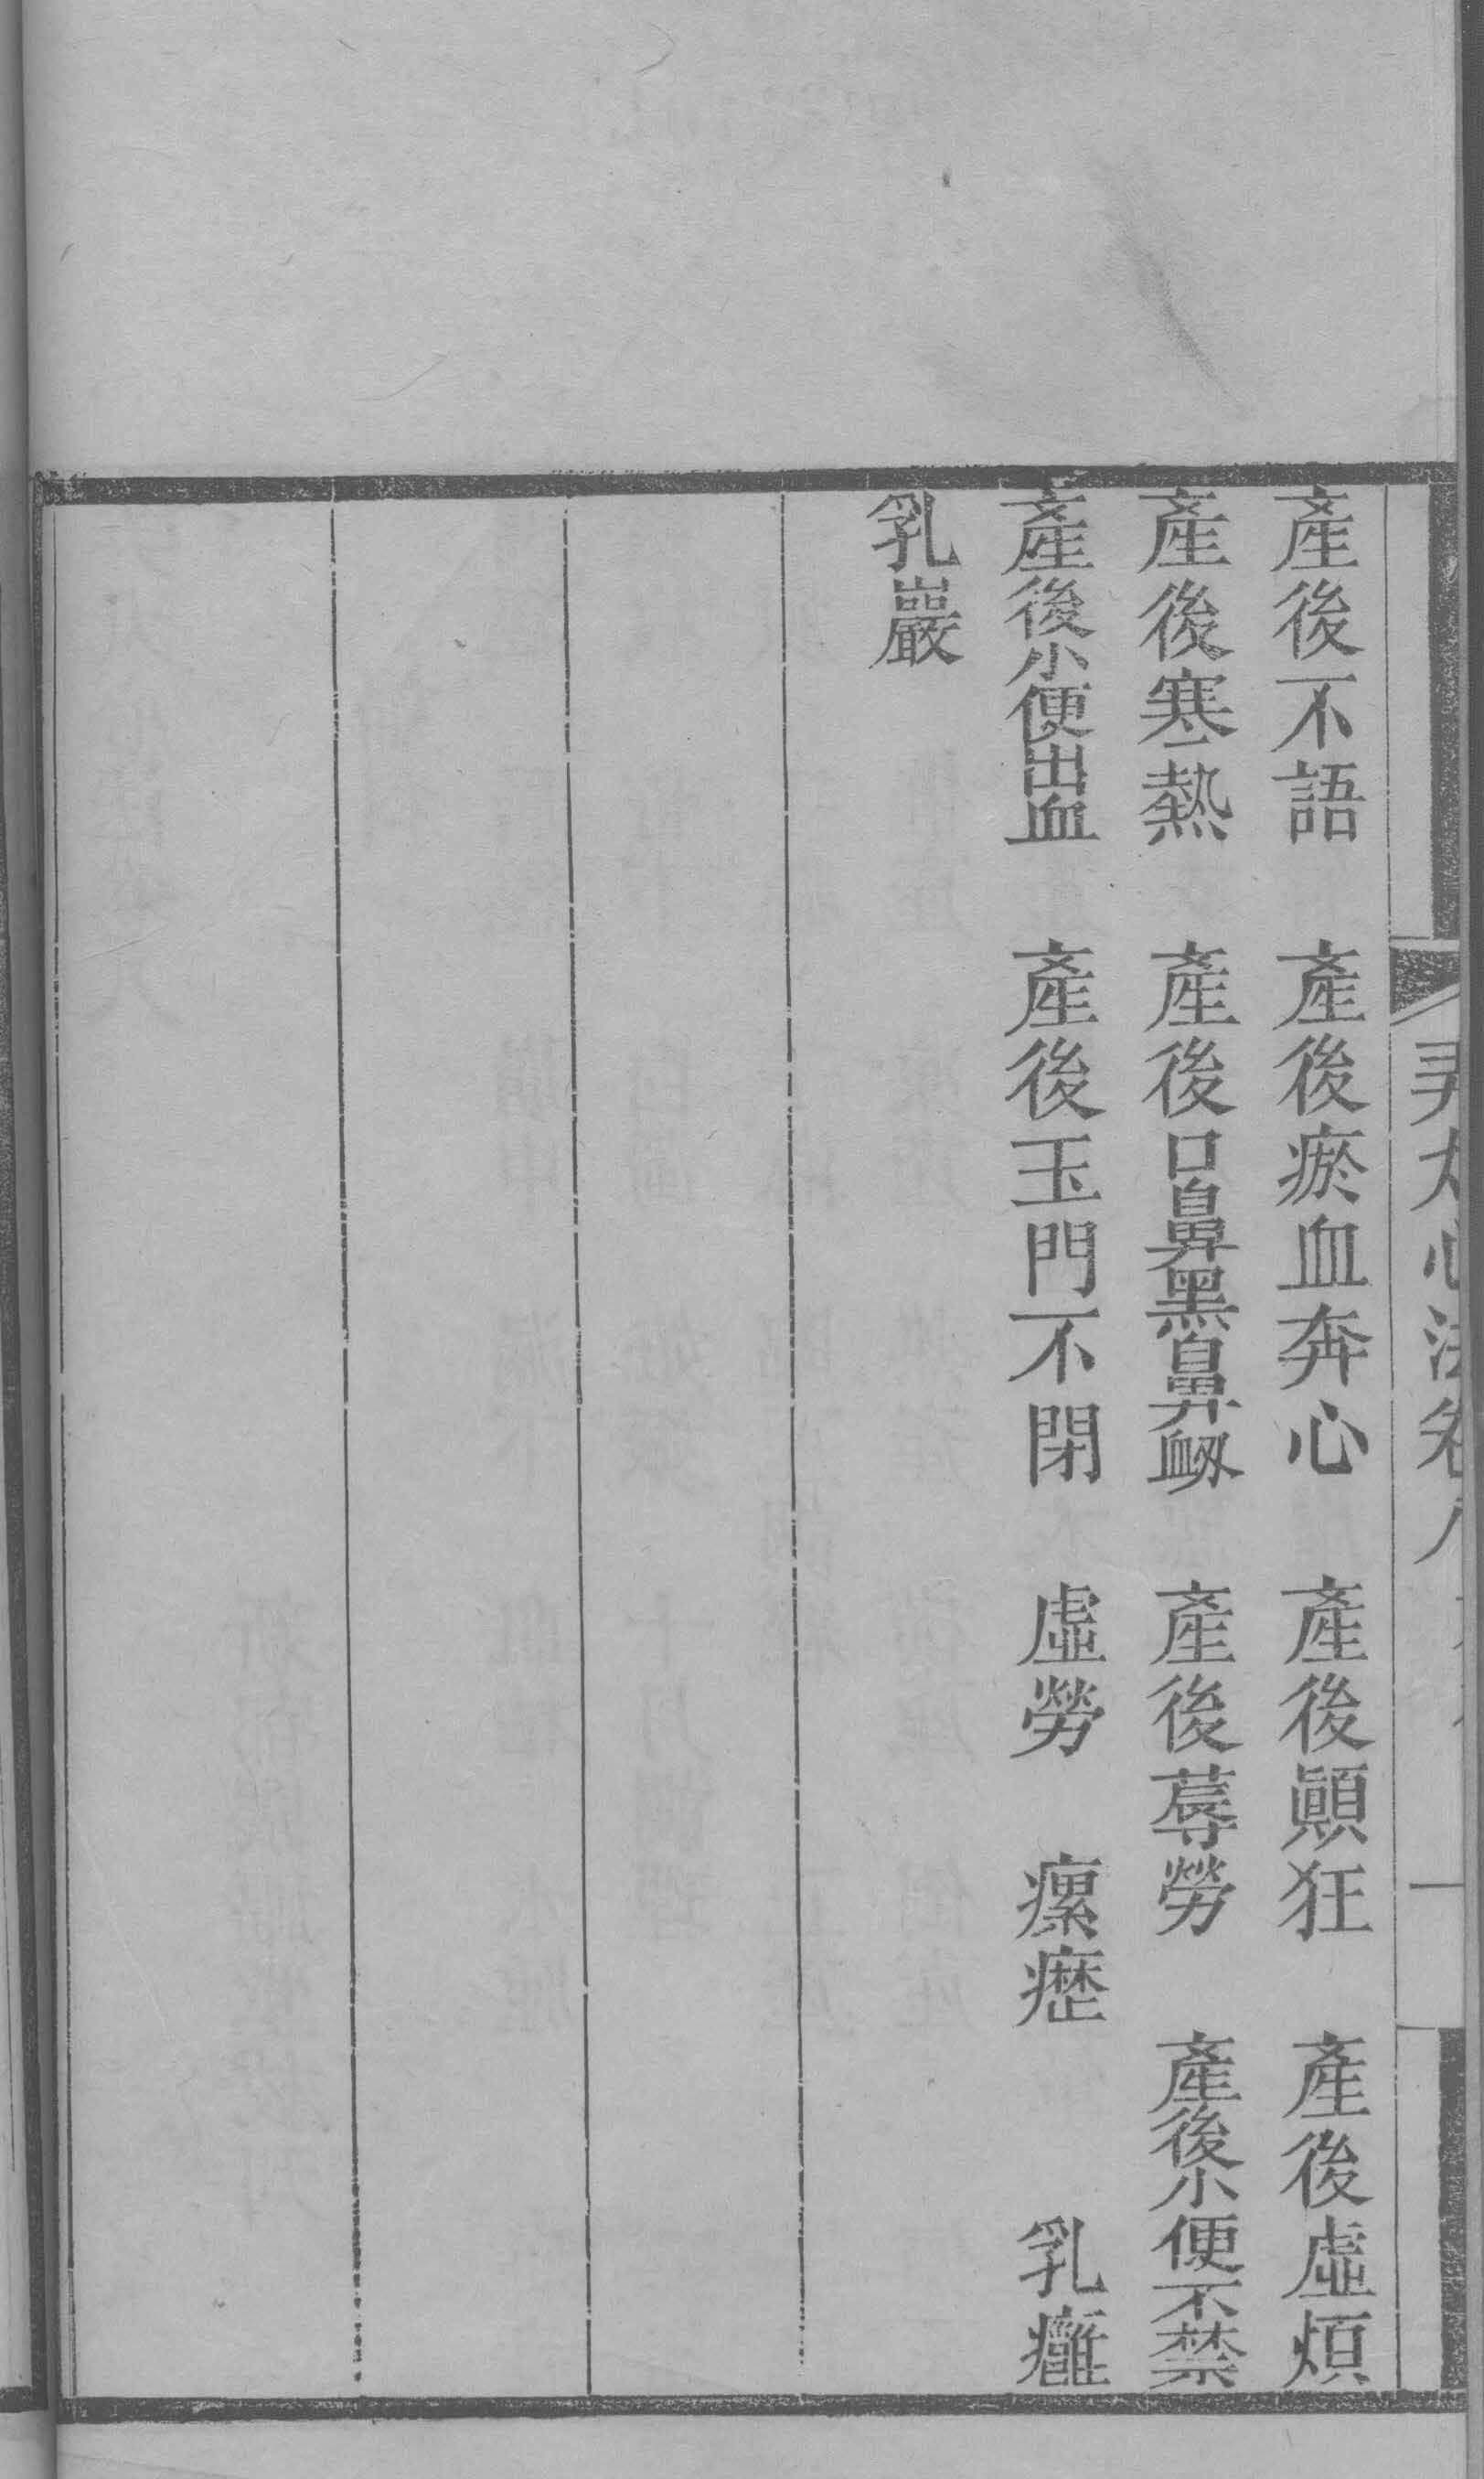 產後不語　產後瘀血奔心　產後顚狂　產後虛煩
產後寒熱　產後口鼻黑鼻衂　產後蓐勞　產後小便不禁
產後小便出血　產後玉門不閉　虛勞　瘰癧　乳癰
乳巖